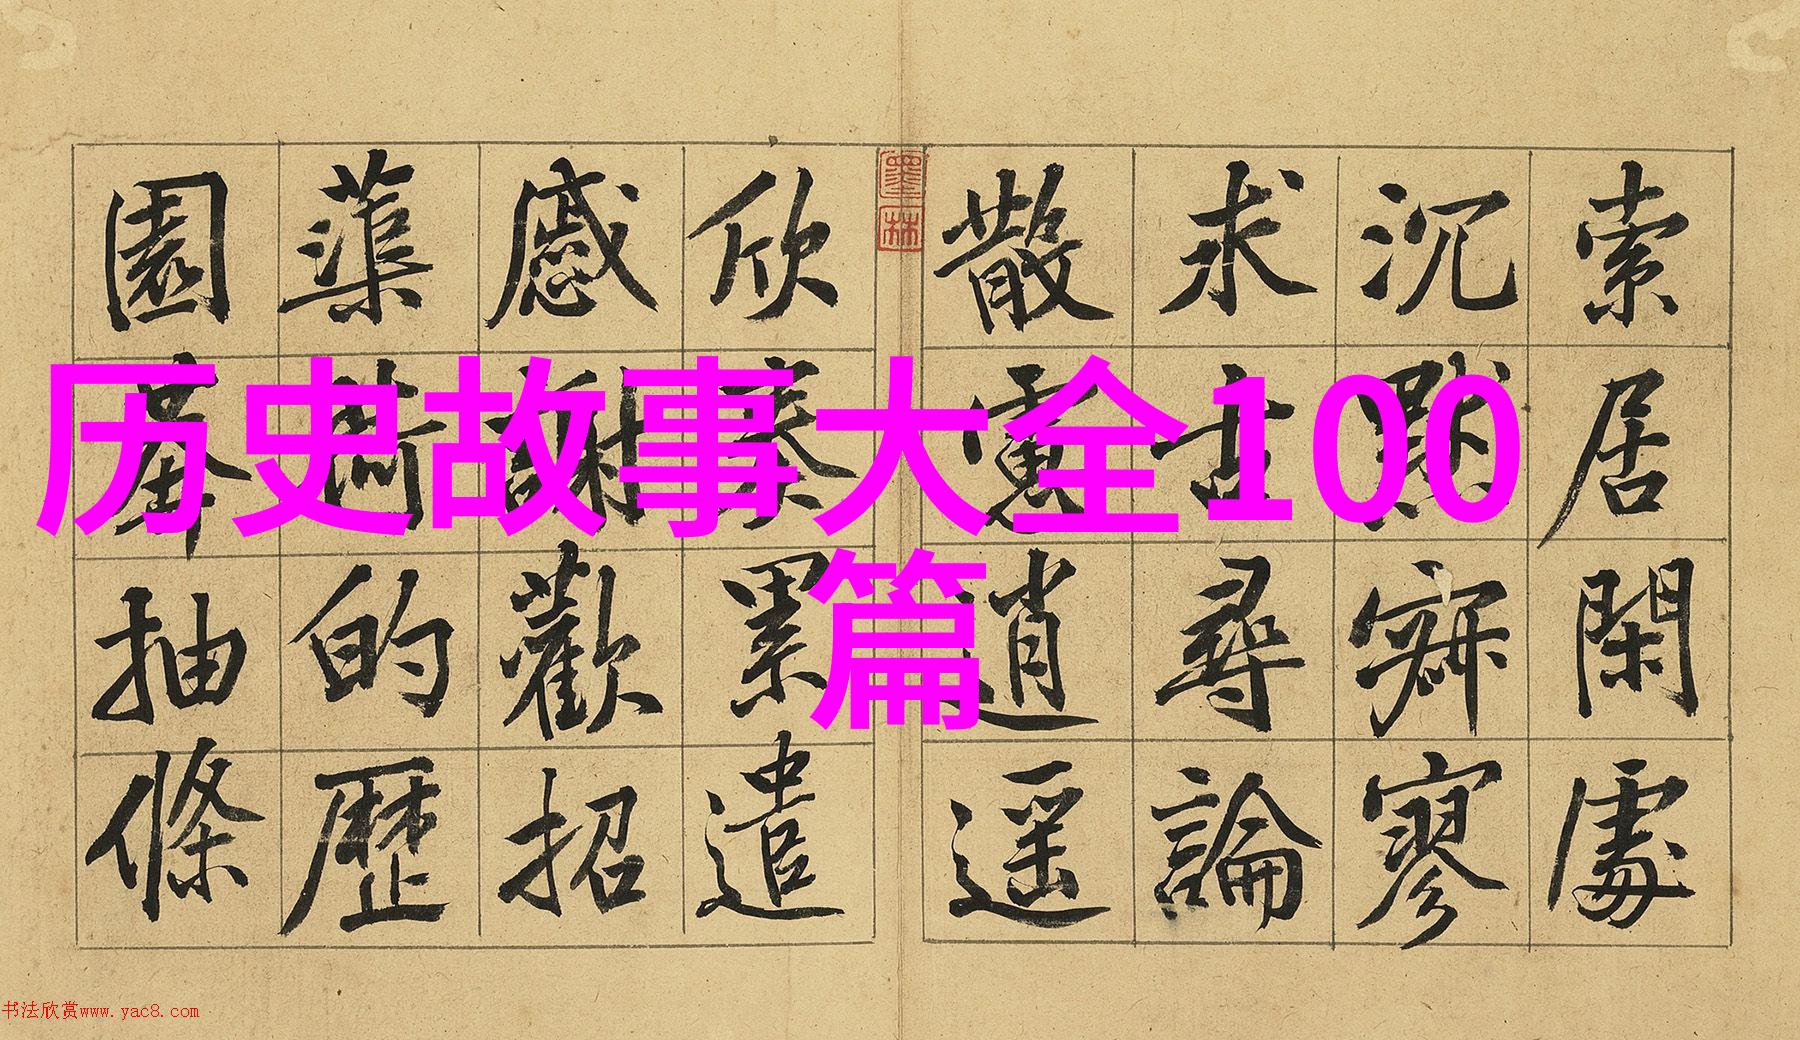 历史故事大全100
篇
索居閑處
沉默寂寥
求古尋論
散慮逍遥
欣奏累遣
慼謝歡招
蕖荷的歷
園莽抽條
墨林
书法欣赏www.yac8.com